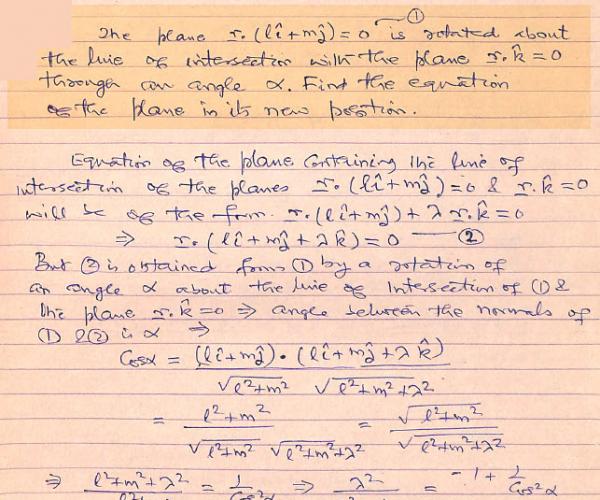 ①
The plane r.(lî+mĵ)=0 is rotated about
the line of intersection with the plane r.k̂=0
through an angle α. Find the equation
of the plane in its new position.
Equation of the plane containing the line of
intersection of the planes r.(lî+mĵ)=0 & r.k̂=0
will be of the form r.(lî+mĵ)+λ r.k̂=0
⇒ r.(lî+mĵ+λk̂)=0 —— ②
But ② is obtained from ① by a rotation of
an angle α about the line of intersection of ① &
the plane r.k̂=0 ⇒ angle between the normals of
① & ② is α ⇒
Cosα = (lî+mĵ)•(lî+mĵ+λk̂) / √l²+m² √l²+m²+λ²
= l²+m² / √l²+m² √l²+m²+λ² = √l²+m² / √l²+m²+λ²
⇒ l²+m²+λ² / = 1/Cos²α ⇒ λ² / = -1+1/Cos²α